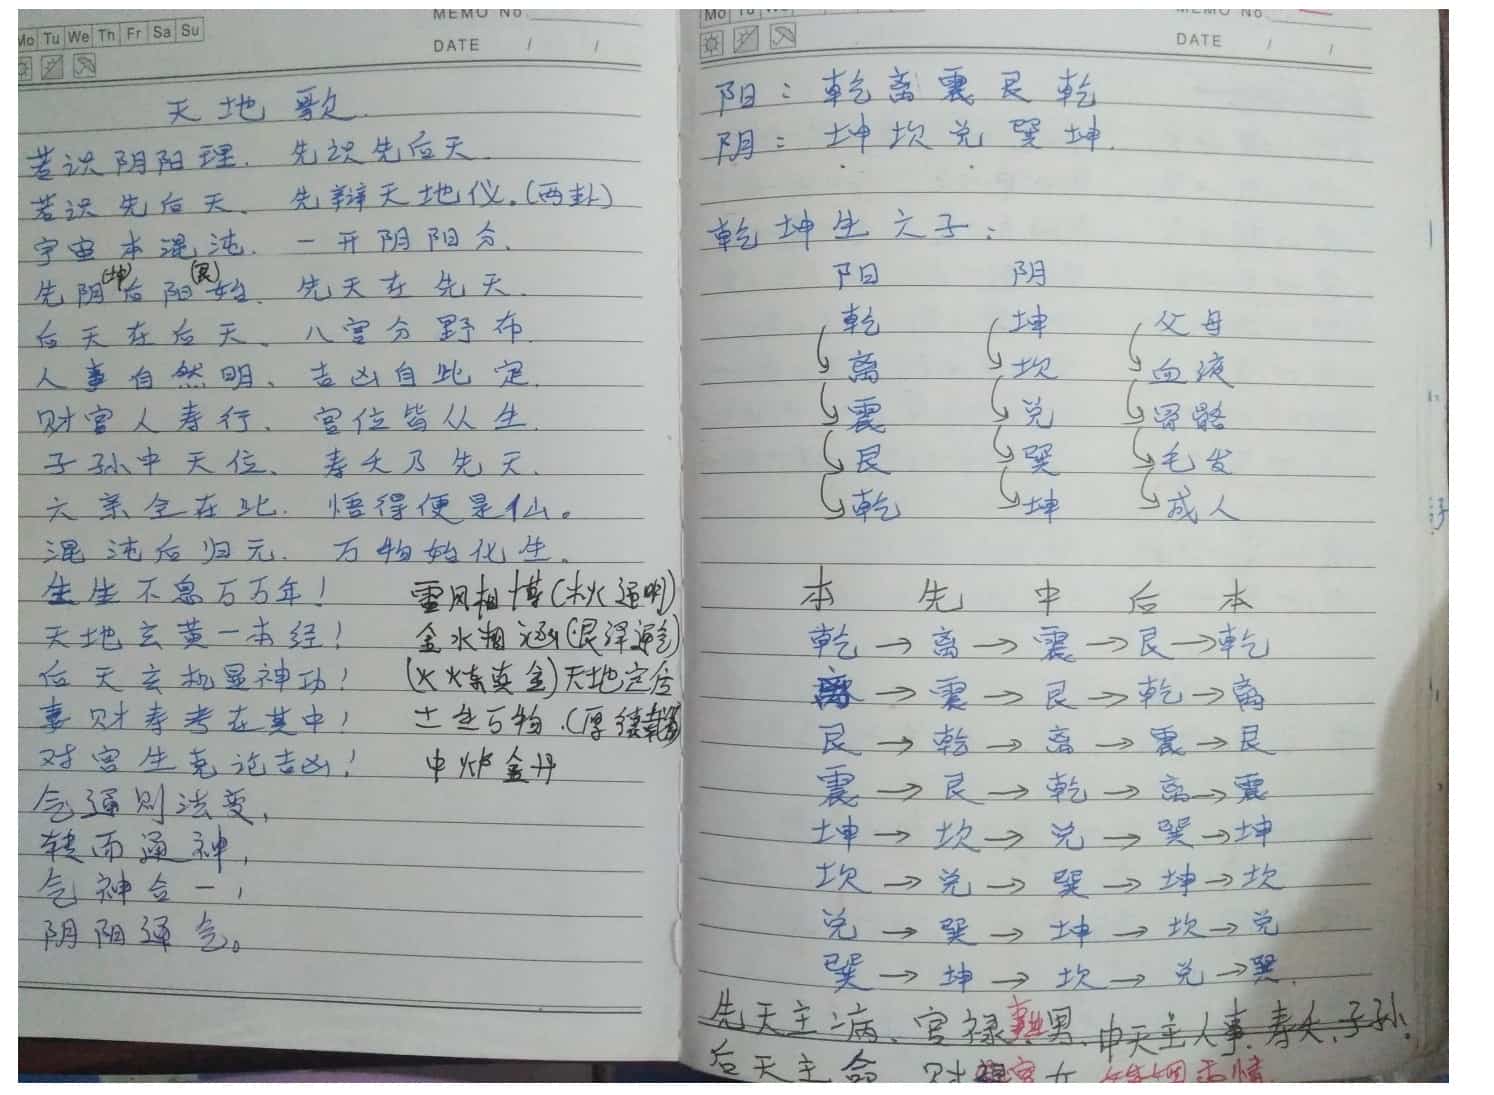 MEMO No
Mo Tu We Th Fr Sa Su
DATE / /
天地歌
若识阴阳理、先识先后天.
若识先后天、先辩天地仪.(两卦)
宇宙本混沌.一开阴阳分、
(坤) (艮)
先阴后阳始.先天在先天.
后天在后天、八宫分野布.
人事自然明、吉凶自此定.
财官人寿行、宫位皆从生.
子孙中天位、寿夭乃先天、
六亲全在此.悟得便是仙。
混沌后归元.万物始化生.
生生不息万万年! 雷风相博(木火通明)
天地玄黄一本经! 金水相涵(艮泽通乾)
后天玄机显神功! (火炼真金)天地定位
事财寿考在其中! 土生万物.(厚德载
对宫生克论吉凶! 中炉金丹
气通则法变,
转而通神,
气神合一,
阴阳通气。
Mo Tu
MEMO No
DATE / /
阳:乾离震艮乾
阴:坤坎兑巽坤.
乾坤生六子:
阳 阴
乾 坤 父母
离 坎 血液
震 兑 骨骼
艮 巽 毛发
乾 坤 成人
本 先 中 后 本
乾→离→震→艮→乾
离→震→艮→乾→离
艮→乾→离→震→艮
震→艮→乾→离→震
坤→坎→兑→巽→坤
坎→兑→巽→坤→坎
兑→巽→坤→坎→兑
巽→坤→坎→兑→巽.
先天主病、官禄 男.中天主人事.寿夭.子孙.
后天主命 财 女